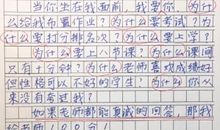 当你坐在我面前，我要你，为什
么给我布置作业？为什么要考试？为
什么要打分排名次？为什么要上学？
为什么要上八节课？为什么课间
只有十分钟？为什么老师喜欢成绩好
但性格可以不好的学生？为什么你从
来没有考过我？
如果老师都能真诚的回答，那我
给老师100分！